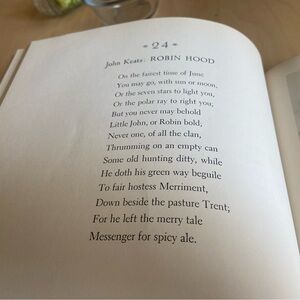 • 24 •
John Keats: ROBIN HOOD
On the fairest time of June
You may go, with sun or moon,
Or the seven stars to light you,
Or the polar ray to right you;
But you never may behold
Little John, or Robin bold;
Never one, of all the clan,
Thrumming on an empty can
Some old hunting ditty, while
He doth his green way beguile
To fair hostess Merriment,
Down beside the pasture Trent;
For he left the merry tale
Messenger for spicy ale.